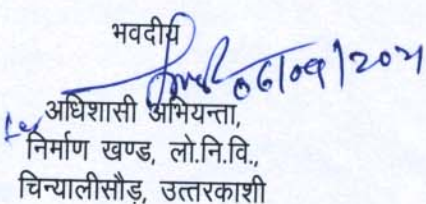 भवदीय
06/09/2021
अधिशासी अभियन्ता,
निर्माण खण्ड, लो.नि.वि.,
चिन्यालीसौड़, उत्तरकाशी